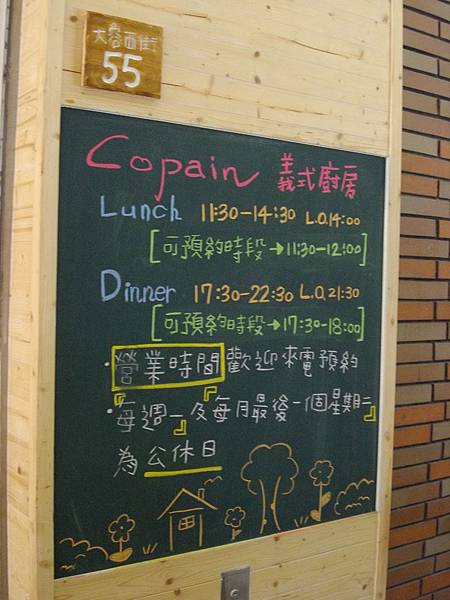 大容西街
55
Copain 義式廚房
Lunch 11:30-14:30 L.O.14:00
[可預約時段→11:30-12:00]
Dinner 17:30-22:30 L.O.21:30
[可預約時段→17:30-18:00]
·營業時間歡迎來電預約
·『每週一』及『每月最後一個星期二』
為公休日